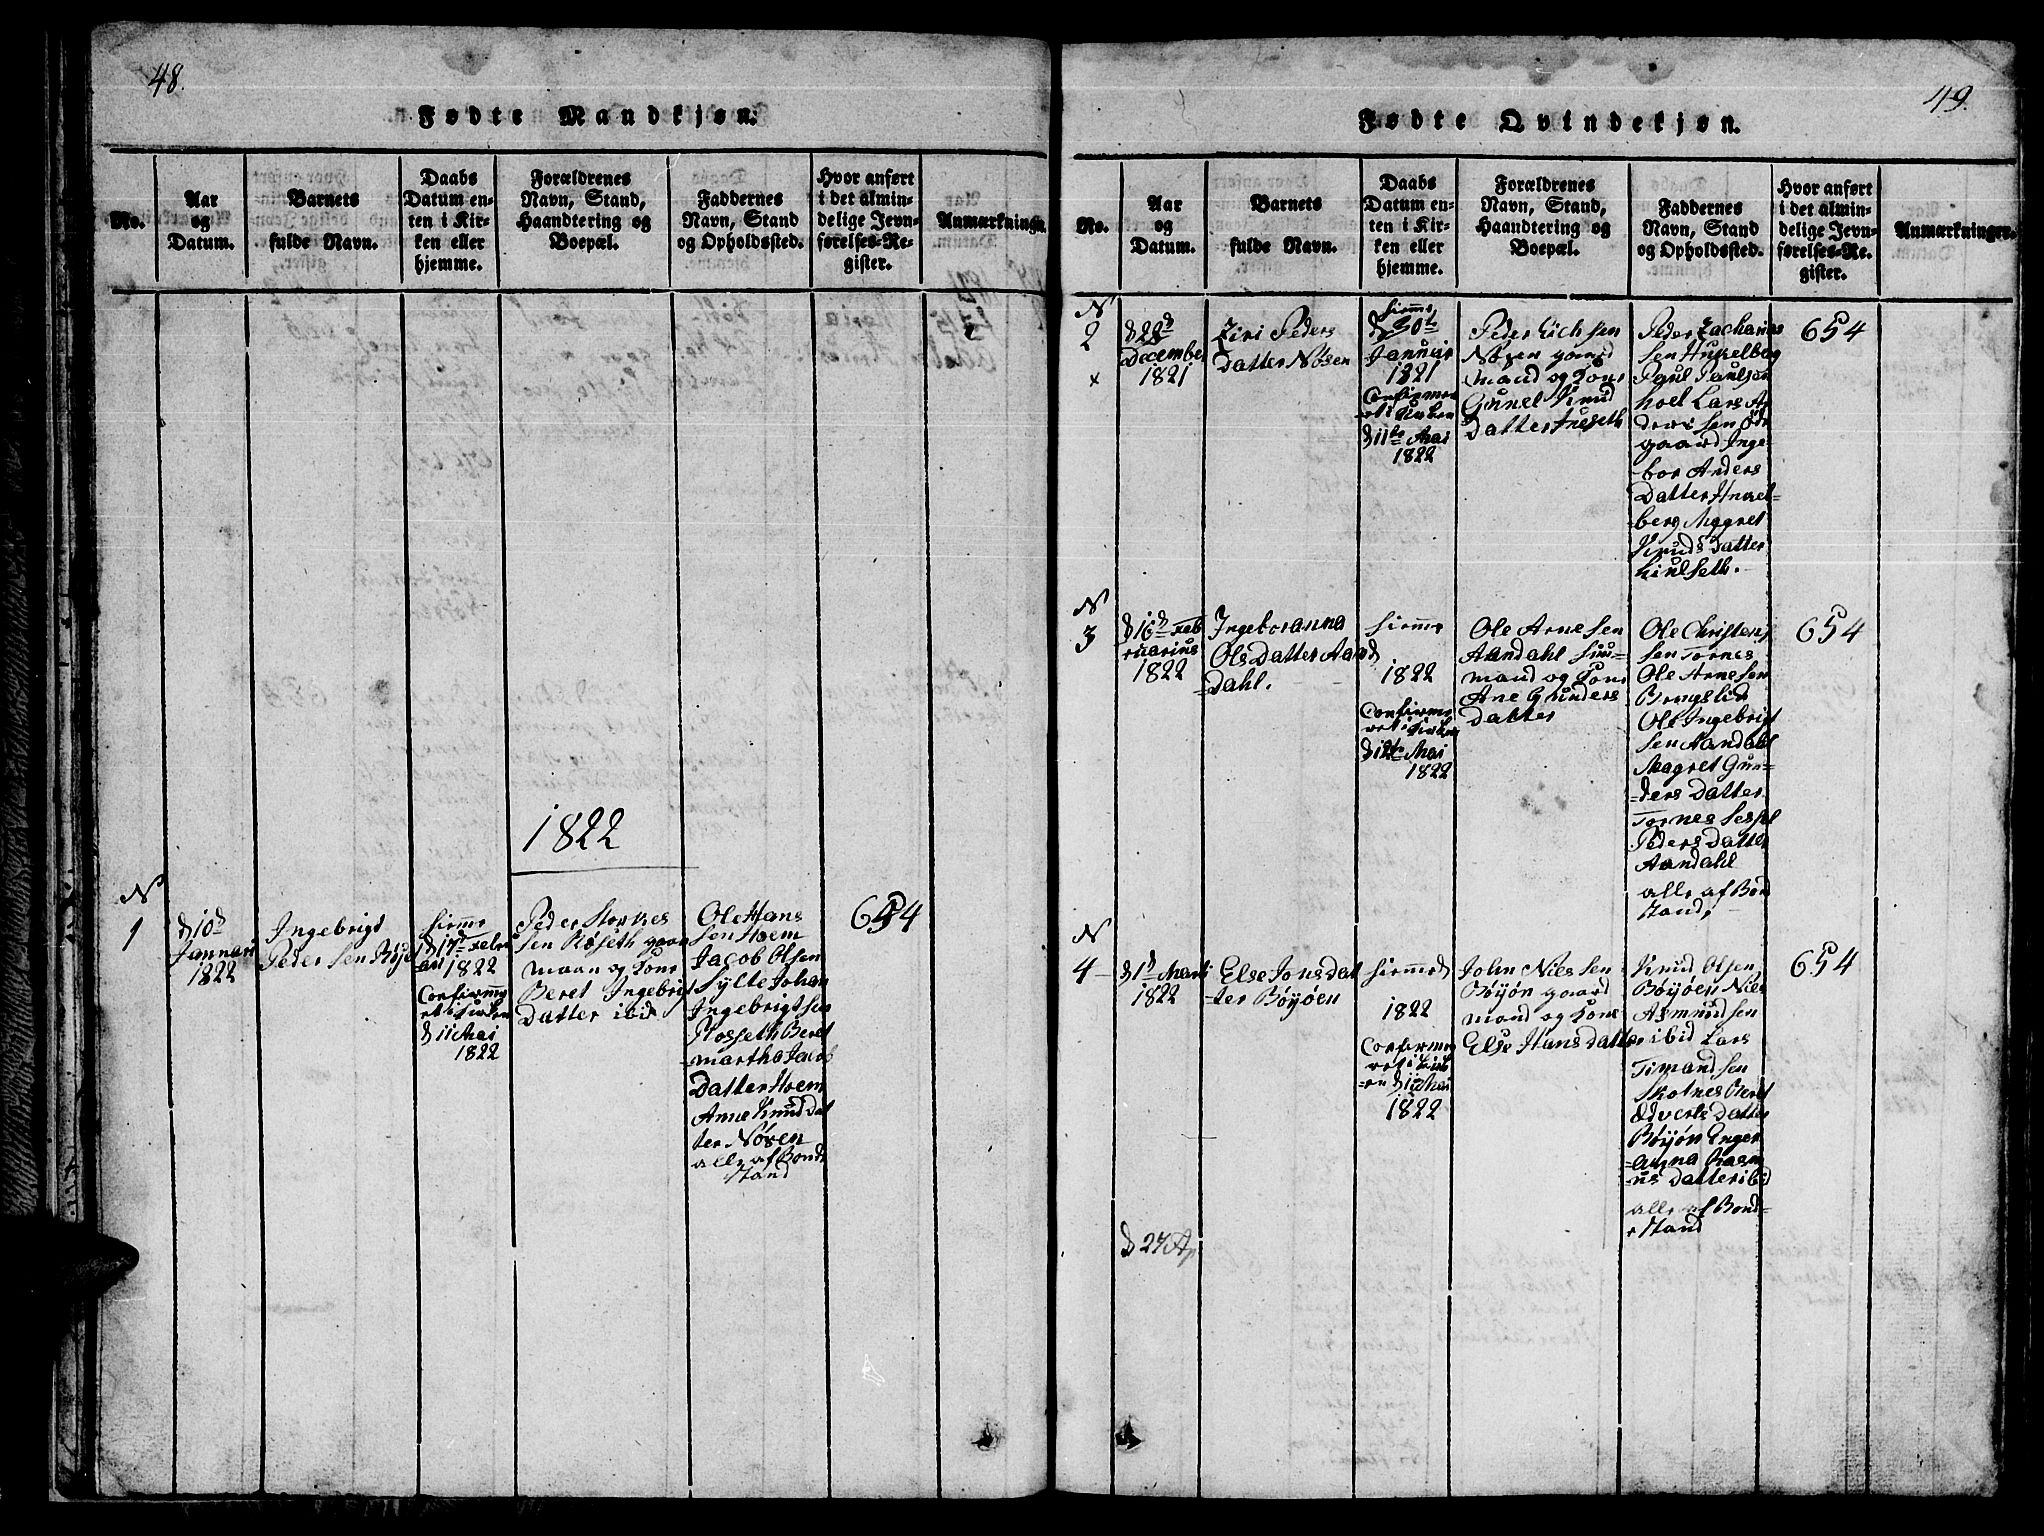 48.
Fødte Mandkjøn.
No.
Aar
og
Datum.
Barnets
fulde Navn.
Daabs
Datum en-
ten i Kir-
ken eller
hjemme.
Forældrenes
Navn, Stand,
Haandtering og
Boepæl.
Faddernes
Navn, Stand
og Opholdssted.
Hvor anført
i det almin-
delige Jevn-
førelses-Re-
gister.
Anmærkninge
1822
N
1
d 10d
Jannari
1822
Ingebrigt
Peder Sen
hiemme
d 17d Febru
ari 1822
Confirme
ret i Kirken
d 11 Mai
1822
Peder
Sen Røseth gaar
maan og Kone
Beret Ingebrigt
Datter ibid
Ole Hans
Sen Hoem
Jacob Olsen
Sylte Johan
Ingebrigtsen
Rosseth Beret
martha Jacob
Datter Hoem
Anne Knud Dat
ter Nøsen
alle af Bonde
stand
654
49.
Fødte Qvindekjøn.
No.
Aar
og
Datum.
Barnets
fulde Navn.
Daabs
Datum en-
ten i Kir-
ken eller
hjemme.
Forældrenes
Navn, Stand,
Haandtering og
Boepæl.
Faddernes
Navn, Stand
og Opholdssted.
Hvor anført
i det almin-
delige Jevn-
førelses-Re-
gister.
Anmærkninger.
N
2
x
d 28d
December
1821
Ziri Peders
Datter Nøsen
hiemme
d 30te
Januar
1821
Confirme
ret i Kirken
d 11te Mai
1822
Peder Erichsen
Nøsen gaard
mand og Kone
Gunnel Knud
Datter
Peder Zacharias
sen
Paul Paulsen
hoel Lars An
dersen
gaard Inge-
bor Anders
Datter
berg Magret
Knuds Datter
654
N
3
d 16d Feb
ruarius
1822
Ingeboranna
Ols Datter Aan
Dahl.
hiemme
d
1822
Confirme
ret i Kirken
d 12te Mai
1822
Ole Arnesen
Aandahl huus-
mand og Kone
Ane Gunders
Datter
Ole Christen
sen Tornes
Ole Arnesen
Ole Ingebrigt
sen Aandahl
Magret Gun-
ders Datter
Tornes Sessel
Peders Datter
Aandahl
alle af Bond
stand,
654
N
4
d 1d Marti
1822
Else Jons Dat
ter Bøyøen
hiemme d
1822
Confirme
ret i Kirk
en d 12 Mai
1822
John Nielsen
Bøyøn gaard
mand og Kone
Else Hans datter
Knud Olsen
Bøyøen Niels
Asmundsen
ibid Lars
Timandsen
Skotnes Beret
Edverts Datter
Bøyøn Inger
anna Rasm
us Datter ibid
alle af Bond-
e stand
654
d 27 Ap